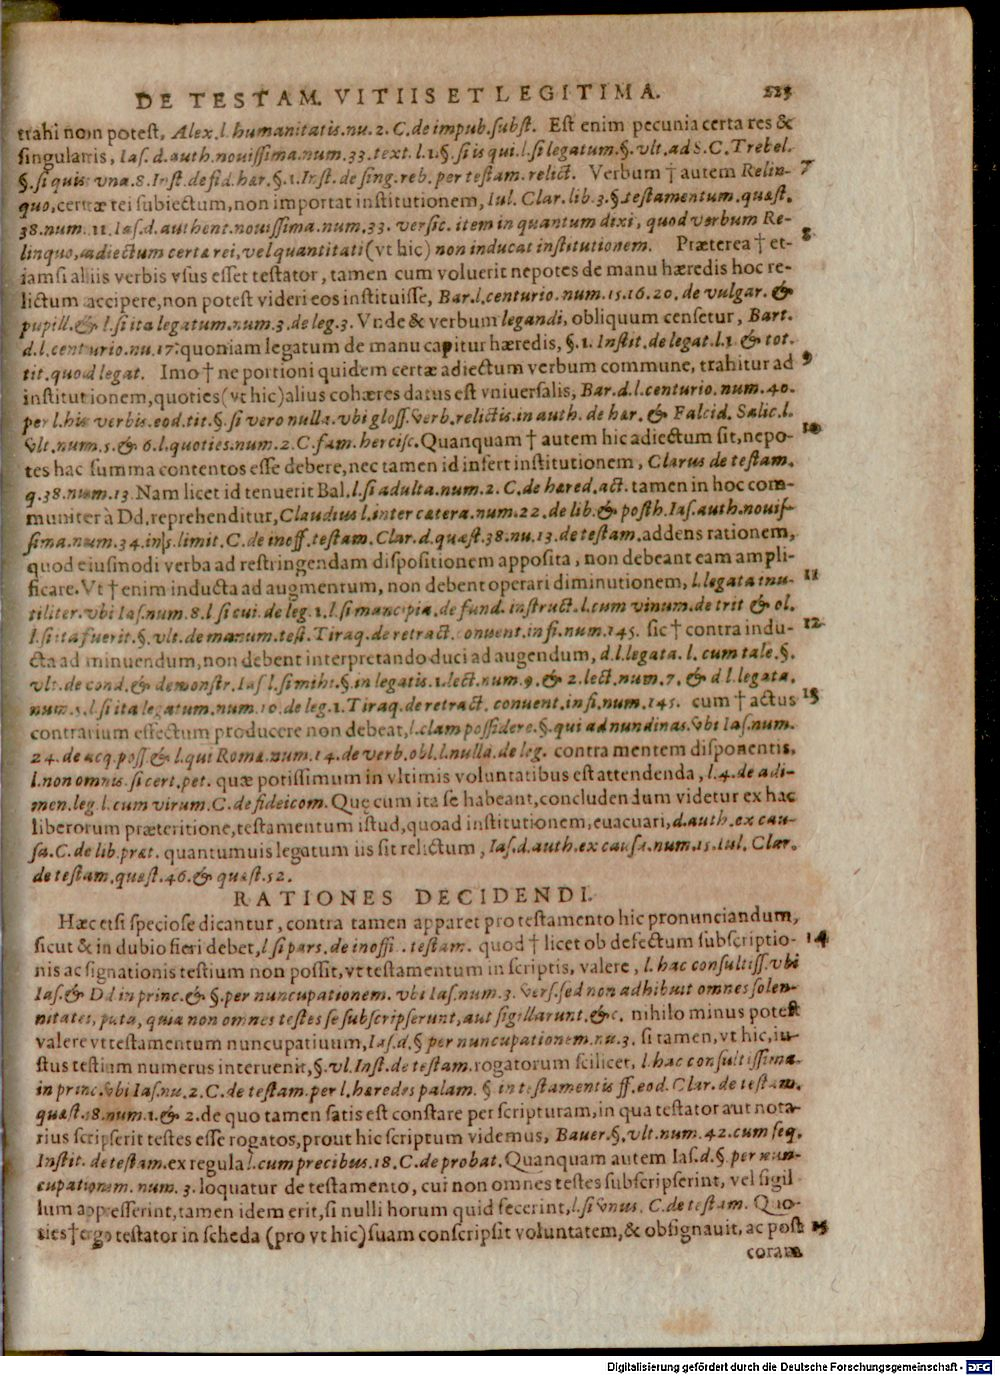 DE TESTAM. VITIIS ET LEGITIMA. 223
trahi non potest, Alex. l. humanitatis. nu. 2. C. de impub. subst. Est enim pecunia certa res &
singularis, Ias. d. auth. nouissima. num. 33. text. l. 1. §. si is qui. l. si legatum. §. vlt. ad S. C. Trebel.
§. si quis vna. 8. Inst. de fid. hær. §. 1. Inst. de sing. reb. per testam. relict. Verbum † autem Relin- 7
quo, certæ rei subiectum, non importat institutionem, Iul. Clar. lib. 3. §. testamentum. quæst.
38. num. 11. Ias. d. authent. nouissima. num. 33. versic. item in quantum dixi, quod verbum Re-
linquo, adiectum certæ rei, vel quantitati (vt hic) non inducat institutionem. Præterea † et- 8
iamsi aliis verbis vsus esset testator, tamen cum voluerit nepotes de manu hæredis hoc re-
lictum accipere, non potest videri eos instituisse, Bar. l. centurio. num. 15. 16. 20. de vulgar. &
pupill. & l. si ita legatum. num. 3. de leg. 3. Vnde & verbum legandi, obliquum censetur, Bart.
d. l. centurio. nu. 17. quoniam legatum de manu capitur hæredis, §. 1. Instit. de legat. l. 1. & tot.
tit. quod legat. Imo † ne portioni quidem certæ adiectum verbum commune, trahitur ad 9
institutionem, quoties (vt hic) alius cohæres datus est vniuersalis, Bar. d. l. centurio. num. 40.
per l. his verbis. eod. tit. §. si vero nulla. vbi gloss. verb. relictis. in auth. de hær. & Falcid. Salic. l.
vlt. num. 5. & 6. l. quoties. num. 2. C. fam. hercisc. Quanquam † autem hic adiectum sit, nepo- 10
tes hac summa contentos esse debere, nec tamen id infert institutionem, Clarus de testam.
q. 38. num. 13. Nam licet id tenuerit Bal. l. si adulta. num. 2. C. de hæred. act. tamen in hoc com-
muniter à Dd. reprehenditur, Claudius l. inter cætera. num. 22. de lib. & posth. Ias. auth. nouis-
sima. num. 34. in 3. limit. C. de inoff. testam. Clar. d. quæst. 38. nu. 13. de testam. addens rationem,
quod eiusmodi verba ad restringendam dispositionem apposita, non debeant eam ampli-
ficare. Vt † enim inducta ad augmentum, non debent operari diminutionem, l. legata inu- 11
tiliter. vbi Ias. num. 8. l. si cui. de leg. 1. l. si mancipia. de fund. instruct. l. cum vinum. de trit & ol.
l. si ita fuerit. §. vlt. de manum. test. Tiraq. de retract. conuent. in fi. num. 145. sic † contra indu- 12
cta ad minuendum, non debent interpretando duci ad augendum, d. l. legata. l. cum tale. §.
vlt. de cond. & demonstr. Ias l. si mihi. §. in legatis. 1. lect. num. 9. & 2. lect. num. 7. & d l. legata.
num. 5. l. si ita legatum. num. 10. de leg. 1. Tiraq. de retract. conuent. in fi. num. 145. cum † actus 13
contrarium effectum producere non debeat, l. clam possidere. §. qui ad nundinas. vbi Ias. num.
24. de acq. poss. & l. qui Romæ. num. 14. de verb. obl. l. nulla. de leg. contra mentem disponentis,
l. non omnis. si cert. pet. quæ potissimum in vltimis voluntatibus est attendenda, l. 4. de adi-
men. leg. l. cum virum. C. de fideicom. Que cum ita se habeant, concludendum videtur ex hac
liberorum præteritione, testamentum istud, quoad institutionem, euacuari, d. auth. ex cau-
sa. C. de lib. præt. quantumuis legatum iis sit relictum, Ias. d. auth. ex causa. num. 15. Iul. Clar.
de testam. quæst. 46. & quæst. 52.
RATIONES DECIDENDI.
Hæc etsi speciose dicantur, contra tamen apparet pro testamento hic pronunciandum,
sicut & in dubio fieri debet, l. si pars. de inoffi. testam. quod † licet ob defectum subscriptio- 14
nis ac signationis testium non possit, vt testamentum in scriptis, valere, l. hac consultiss. vbi
Ias. & Dd in princ. & §. per nuncupationem. vbi Ias. num. 3. Vers. sed non adhibuit omnes solen-
nitates, puta, quia non omnes testes se subscripserunt, aut sigillarunt. &c. nihilo minus potest
valere vt testamentum nuncupatiuum, Ias. d. § per nuncupationem. nu. 3. si tamen, vt hic, iu-
stus testium numerus interuenit, §. vl. Inst. de testam. rogatorum scilicet, l. hac consultissima.
in princ. vbi Ias. nu. 2. C. de testam. per l. hæredes palam. § in testamentis ff. eod. Clar. de testam.
quæst. 58. num. 1. & 2. de quo tamen satis est constare per scripturam, in qua testator aut nota-
rius scripserit testes esse rogatos, prout hic scriptum videmus, Bauer. §. vlt. num. 42. cum seq.
Instit. de testam. ex regula l. cum precibus. 18. C. de probat. Quanquam autem Ias. d. §. per nun-
cupationem. num. 3. loquatur de testamento, cui non omnes testes subscripserint, vel sigil
lum appresserint, tamen idem erit, si nulli horum quid fecerint, l. si vnus. C. de testam. Quo-
ties † ergo testator in scheda (pro vt hic) suam conscripsit voluntatem, & obsignauit, ac post 15
coram
Digitalisierung gefördert durch die Deutsche Forschungsgemeinschaft - DFG